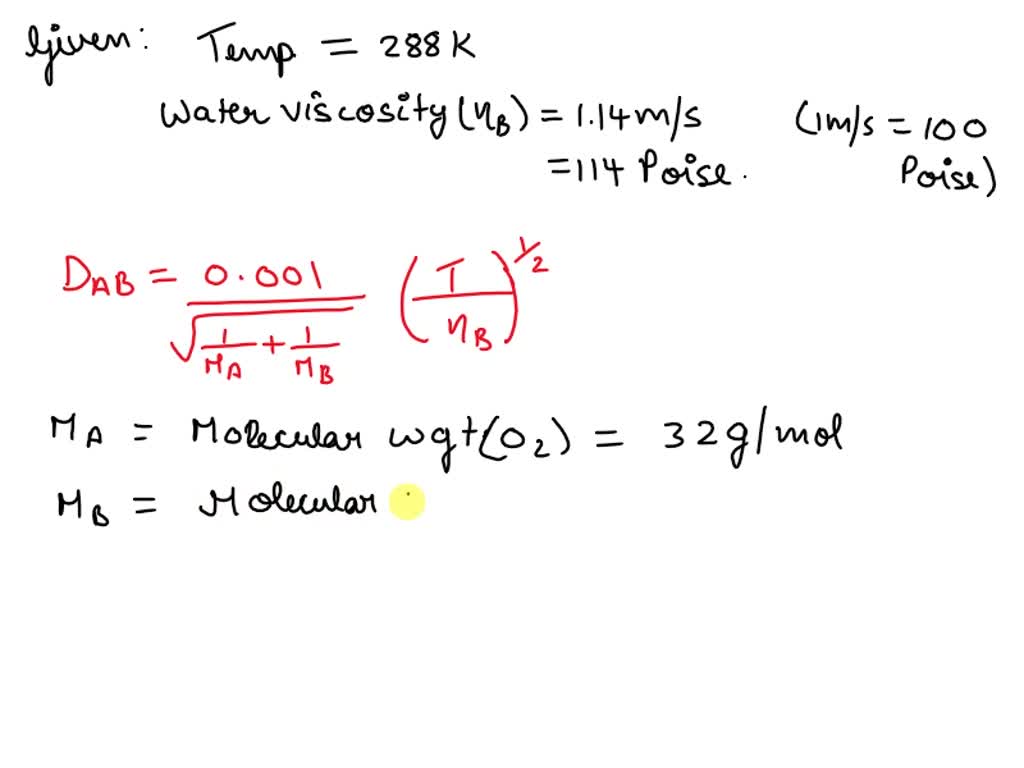 Given: Temp = 288K
Water viscosity (ηB) = 1.14 m/s (1m/s = 100
= 114 Poise. Poise)
DAB = 0.001 / √(1/MA + 1/MB) (T/ηB)^1/2
MA = Molecular wgt (O2) = 32g/mol
MB = Molecular